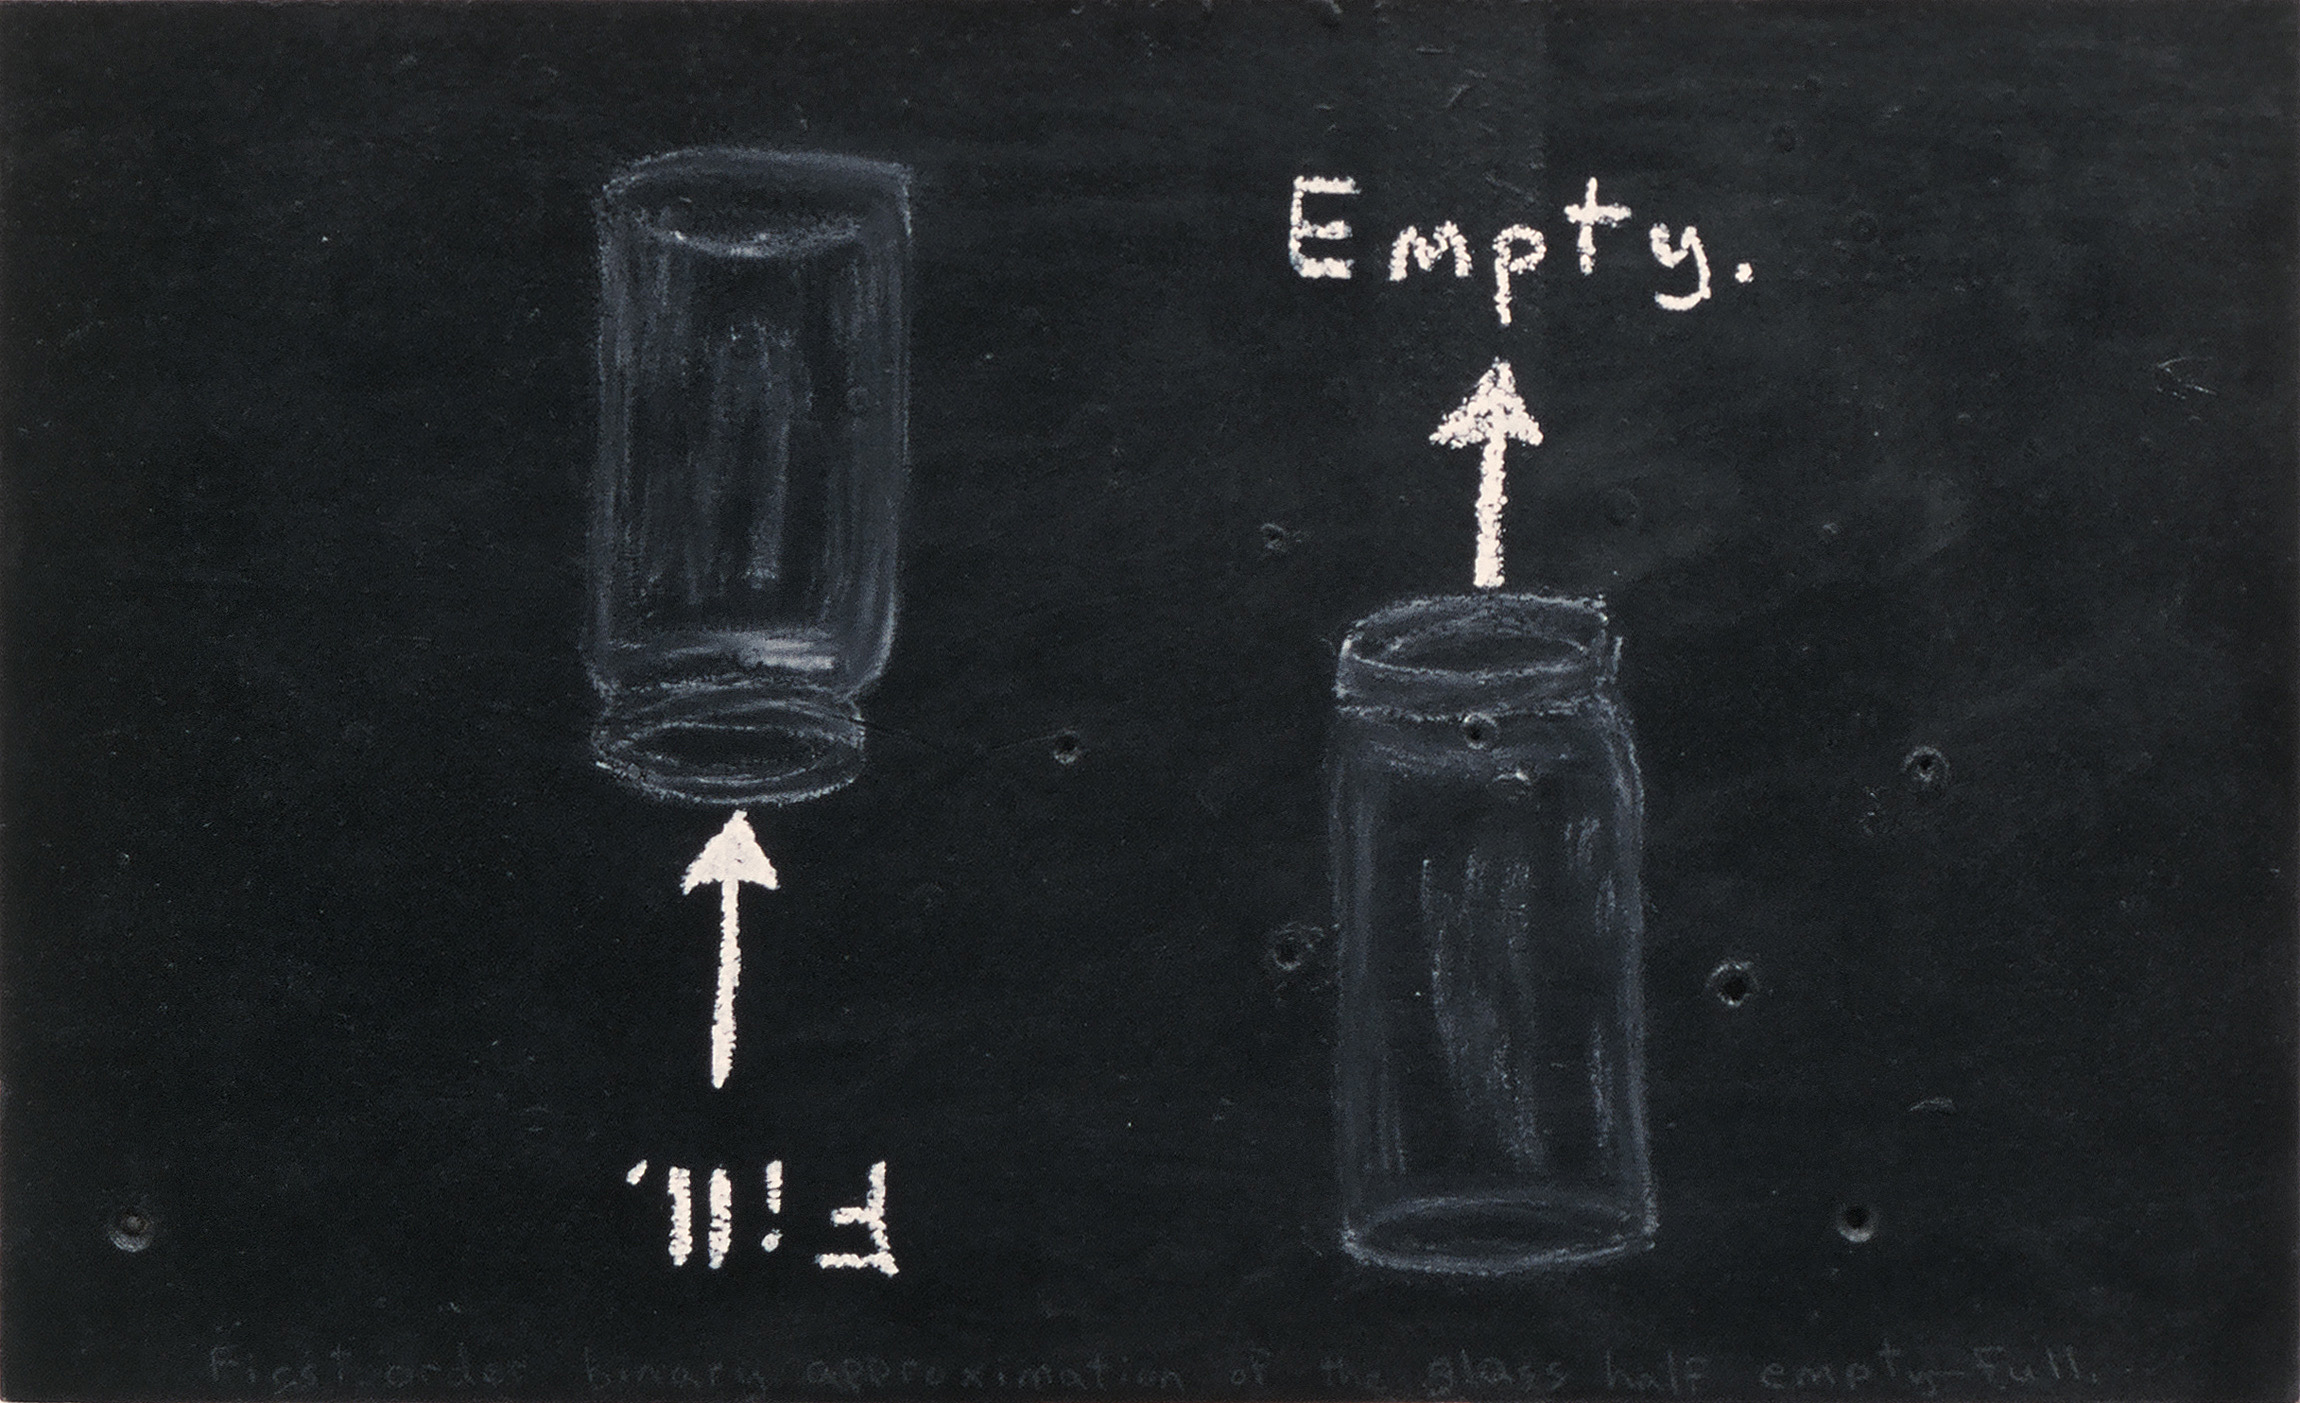 Empty.
Fill.
First order binary approximation of the glass half empty-full.